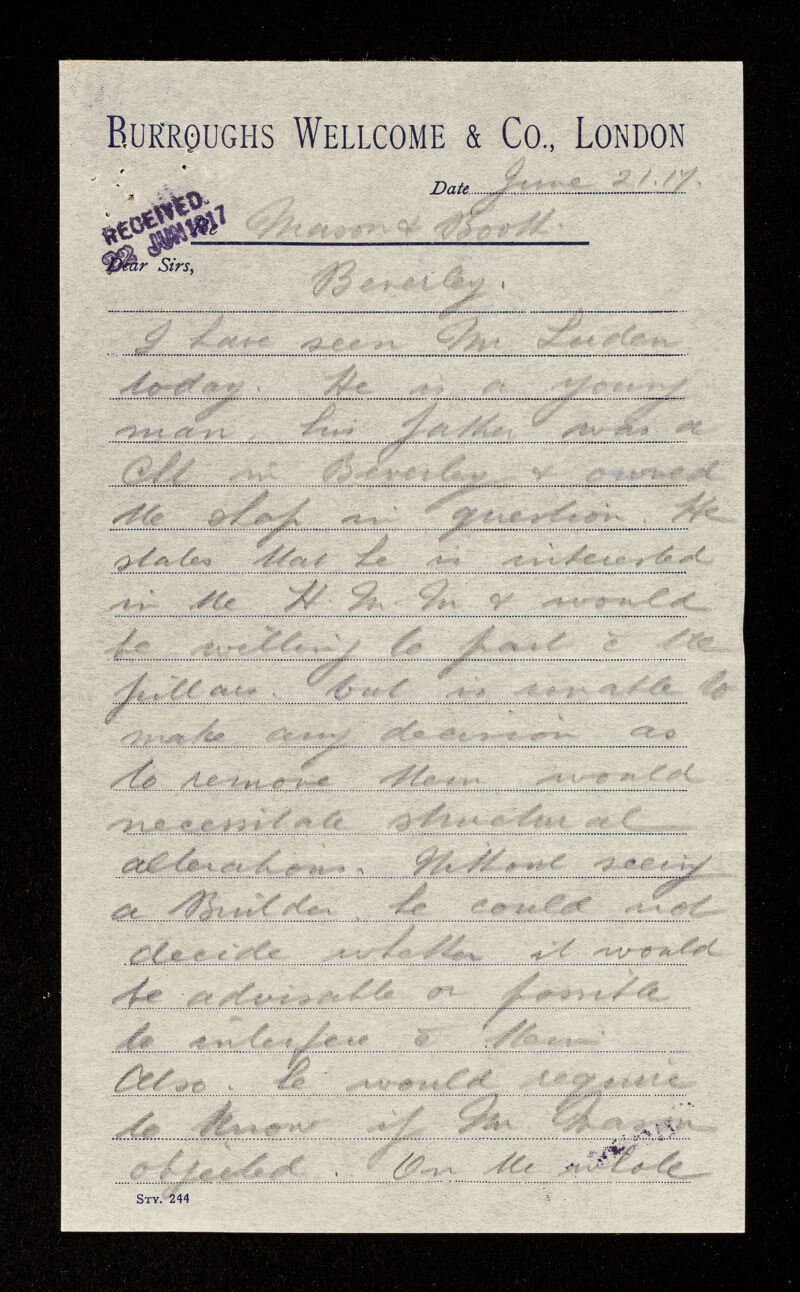 BURROUGHS WELLCOME & CO., LONDON
Date June 21.17.
RECEIVED.
22 JUN 1917
Re Mason & Booth
Dear Sirs,
Beverley.
I have seen Mr Loeden
today. He is a young
man, his father was a
in Beverley & owned
the shop in question. He
states that he is interested
in the H. M. M & would
be willing to part c̄ the
pillars. but is unable to
make any decision as
to remove them would
necessitate structural
alterations. Without seeing
a Builder he could not
decide whether it would
be advisable or possible
to interfere c̄ them
Also. he would require
to know if Mr Mason
objected. On the whole
STY. 244